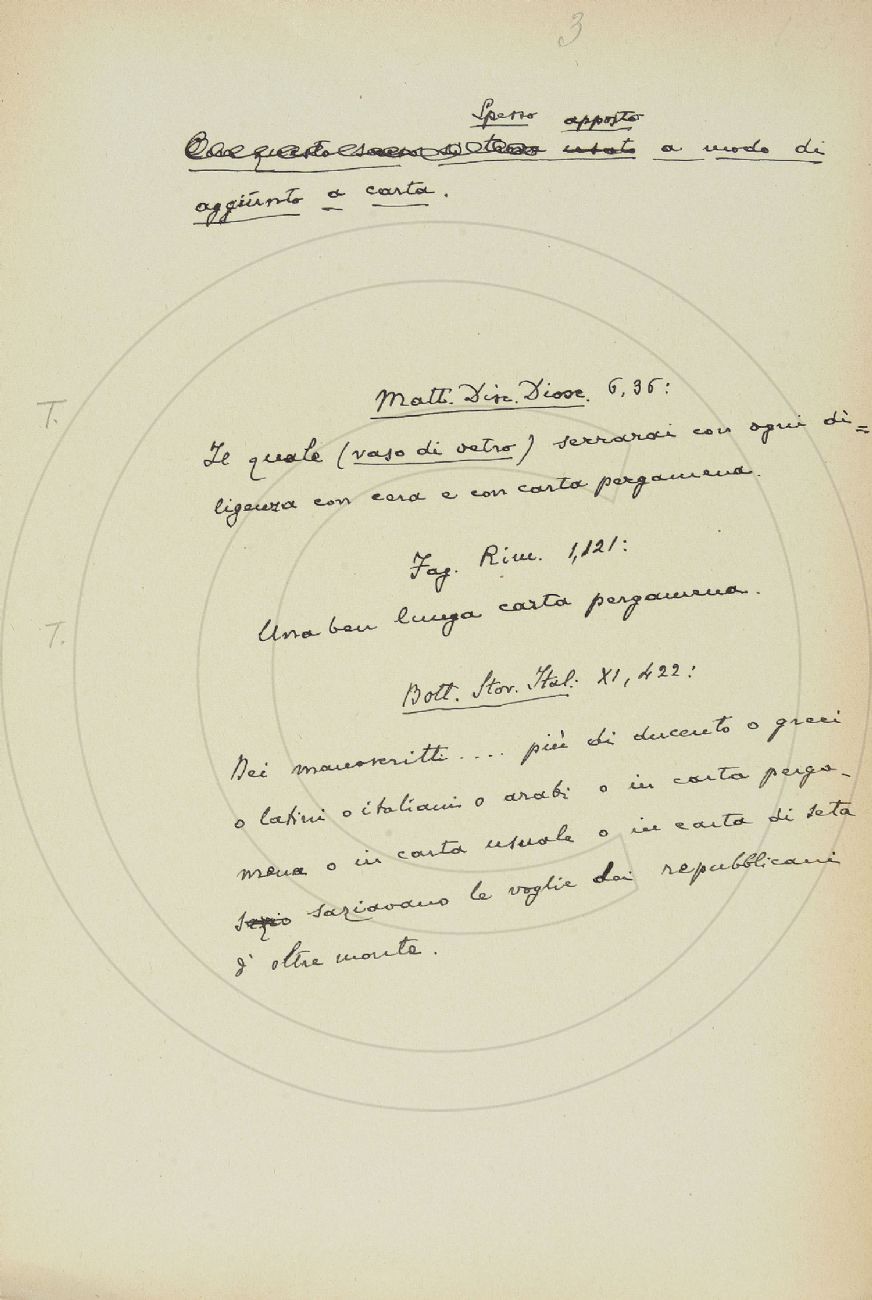 3
Spesso apposto
usato a modo di
aggiunto a carta.
T.
Matt. Disc. Diosc. 6,36:
Il quale (vaso di vetro) serrarai con ogni di=
ligenza con cera e con carta pergamena.
Fag. Rim. 1,121:
T.
Una ben lunga carta pergamena.
Bott. Stor. Ital. XI, 422:
Dei manoscritti .... più di ducento o greci
o latini o italiani o arabi o in carta perga-
mena o in carta usuale o in carta di seta
saziavano le voglie dei repubblicani
d' oltre monte.